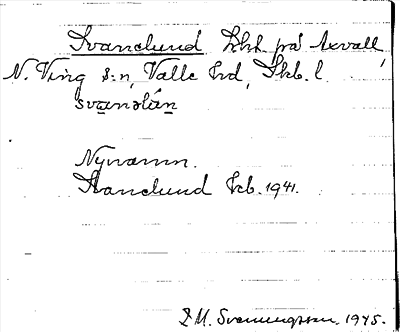 Svanelund lht på Axvall,
N. Ving s:n, Valle hd, Skb. l.
svanəlún
Nynamn.
Svanelund Jrb. 1941.
S.M. Svenungsson. 1945.